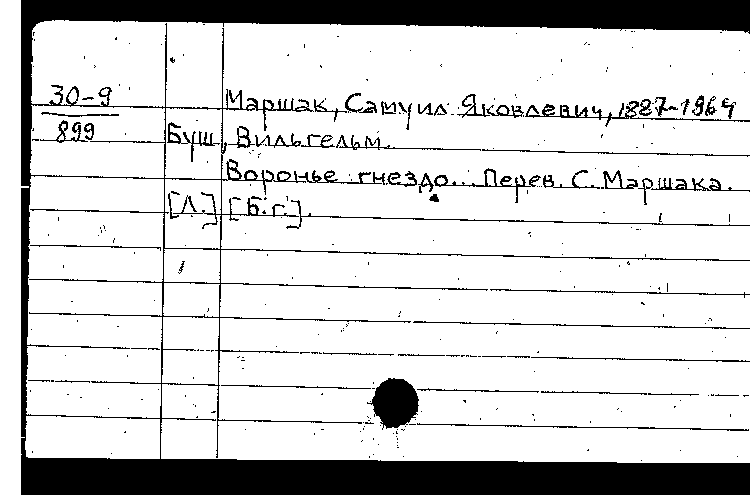 30-9
899
Маршак, Самуил Яковлевич, 1887-1964
Буш, Вильгельм.
Воронье гнездо... Перев. С. Маршака.
[Л.] [Б.г.].